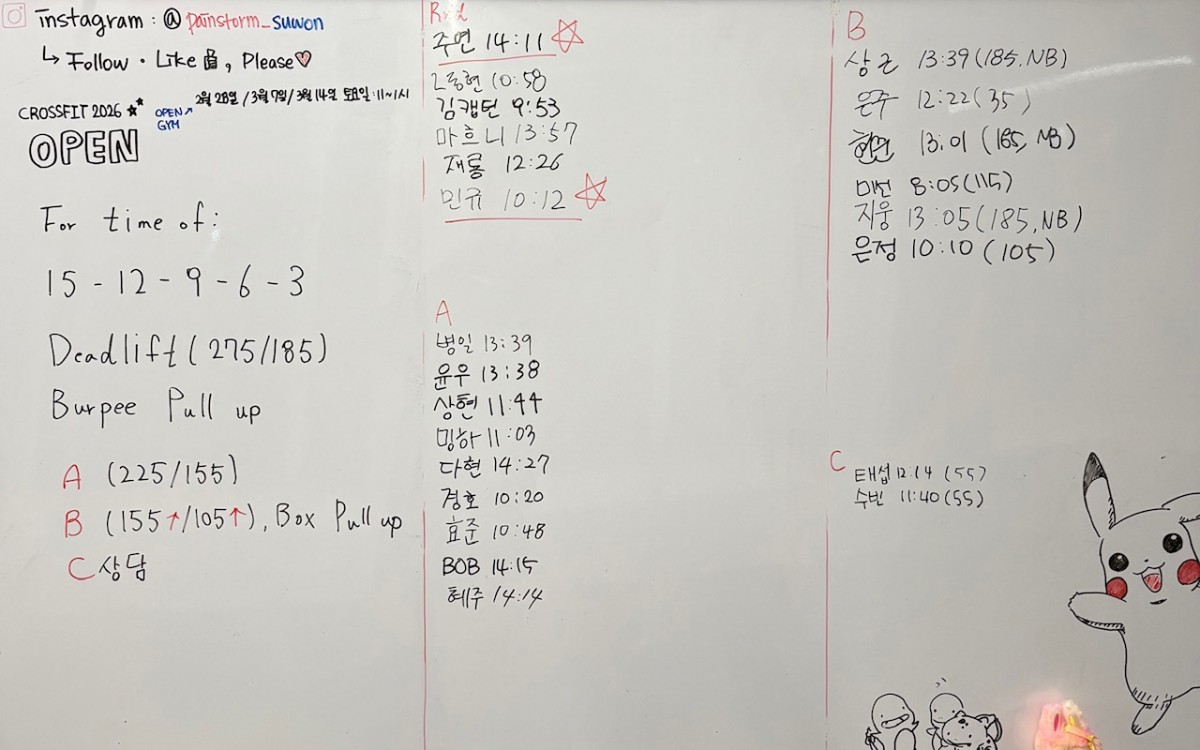 instagram : @ painstorm_suwon
↳ Follow · Like 👍, Please♡
CROSSFIT 2026
OPEN
OPEN↗
GYM
2월 28일 / 3월 7일 / 3월 14일 토요일 : 11~1시
For time of :
15 - 12 - 9 - 6 - 3
Deadlift ( 275/185)
Burpee Pull up
A (225/155)
B (155↑/105↑), Box Pull up
C 상담
주연 14:11 ☆
동현 10:58
김캡틴 9:53
마흐니 13:57
재룡 12:26
민규 10:12 ☆
A
병일 13:39
윤우 13:38
상현 11:44
밍하 11:03
다현 14:27
경호 10:20
효준 10:48
BOB 14:15
혜주 14:14
B
상근 13:39 (185.NB)
은주 12:22 (35)
13:01 (185, NB)
미선 8:05 (115)
지웅 13:05 (185,NB)
은정 10:10 (105)
C
태섭 12:14 (55)
수빈 11:40 (55)